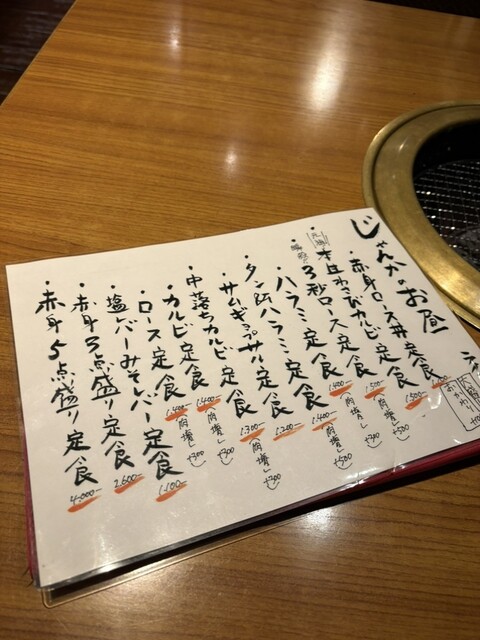 じゃんかのお昼
・赤身ロース丼定食
・元祖 本生わさびカルビ定食 1.500- (肉増し +500)
・元祖 3秒ロース定食 1.600- (肉増し +300)
・ハラミ定食 1.400- (肉増し +500)
・タン&ハラミ定食 1.200-
・サムギョプサル定食 1.300- (肉増し +300)
・中落ちカルビ定食
・カルビ定食 1.400- (肉増し +300)
・ロース定食 1.400- (肉増し +300)
・塩レバーみそレバー定食 1.100-
・赤身3点盛り定食 2.600-
・赤身5点盛り定食 4.000-
おかわり